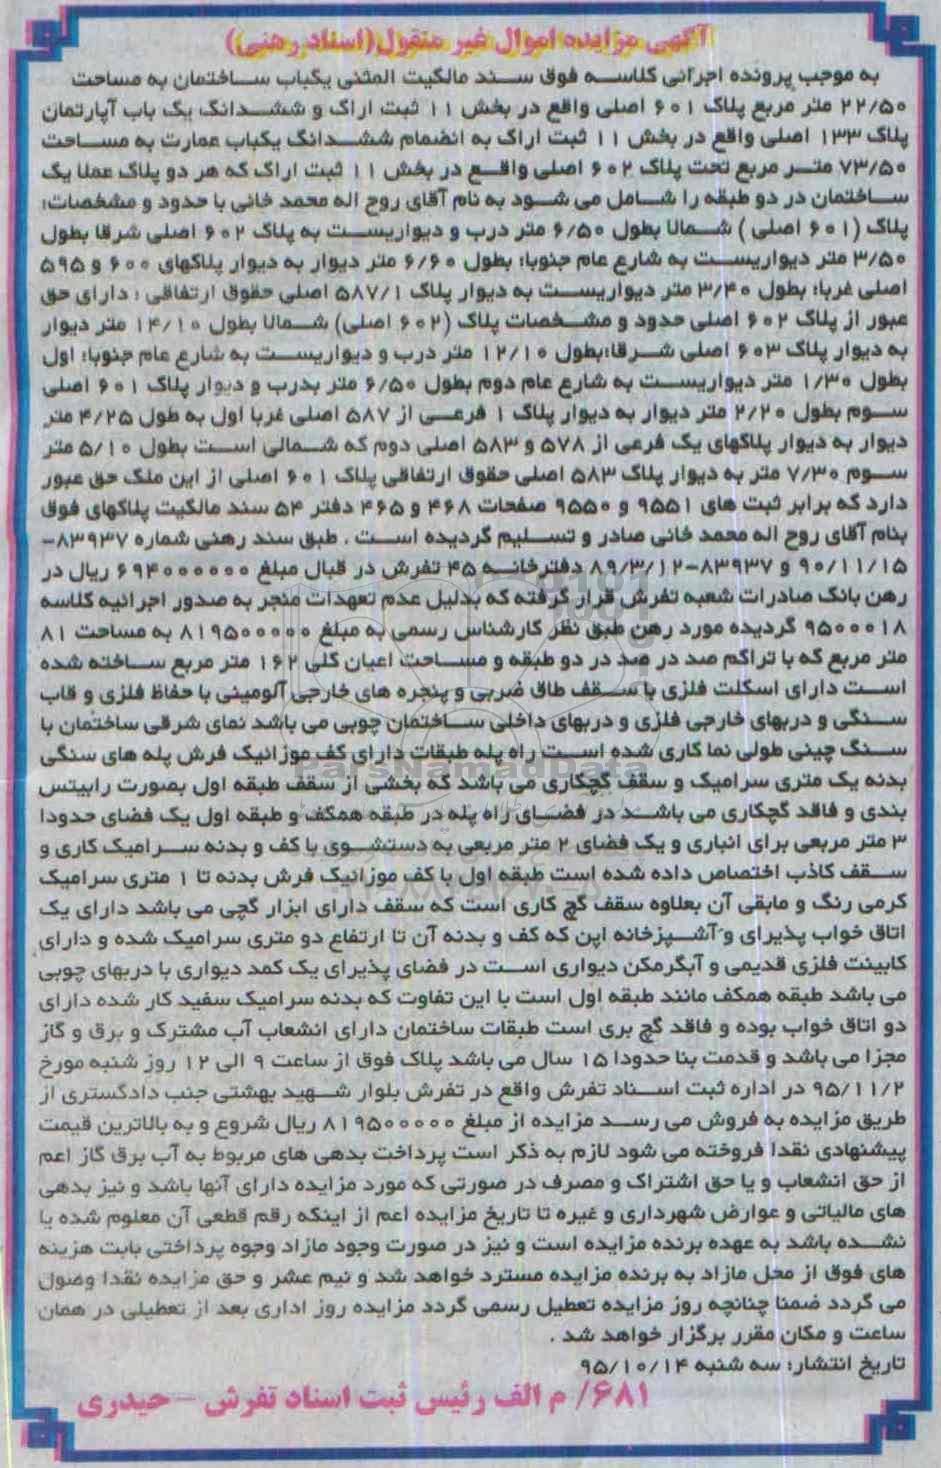 آگهی مزایده اموال غیر منقول(اسناد رهنی)
به موجب پرونده اجرائی کلاسه فوق سند مالکیت المثنی یکباب ساختمان به مساحت
۲۲/۵۰ متر مربع پلاک ۶۰۱ اصلی واقع در بخش ۱۱ ثبت اراک و ششدانگ یک باب آپارتمان
پلاک ۱۳۳ اصلی واقع در بخش ۱۱ ثبت اراک به انضمام ششدانگ یکباب عمارت به مساحت
۷۳/۵۰ متر مربع تحت پلاک ۶۰۲ اصلی واقع در بخش ۱۱ ثبت اراک که هر دو پلاک عملا یک
ساختمان در دو طبقه را شامل می شود به نام آقای روح اله محمد خانی با حدود و مشخصات:
پلاک (۶۰۱ اصلی ) شمالا بطول ۶/۵۰ متر درب و دیواریست به پلاک ۶۰۲ اصلی شرقا بطول
۳/۵۰ متر دیواریست به شارع عام جنوبا: بطول ۶/۶۰ متر دیوار به دیوار پلاکهای ۶۰۰ و ۵۹۵
اصلی غربا: بطول ۳/۴۰ متر دیواریست به دیوار پلاک ۵۸۷/۱ اصلی حقوق ارتفاقی : دارای حق
عبور از پلاک ۶۰۲ اصلی حدود و مشخصات پلاک (۶۰۲ اصلی) شمالا بطول ۱۴/۱۰ متر دیوار
به دیوار پلاک ۶۰۳ اصلی شرقا:بطول ۱۲/۱۰ متر درب و دیواریست به شارع عام جنوبا: اول
بطول ۱/۳۰ متر دیواریست به شارع عام دوم بطول ۶/۵۰ متر بدرب و دیوار پلاک ۶۰۱ اصلی
سوم بطول ۲/۲۰ متر دیوار به دیوار پلاک ۱ فرعی از ۵۸۷ اصلی غربا اول به طول ۴/۲۵ متر
دیوار به دیوار پلاکهای یک فرعی از ۵۷۸ و ۵۸۳ اصلی دوم که شمالی است بطول ۵/۱۰ متر
سوم ۷/۳۰ متر به دیوار پلاک ۵۸۳ اصلی حقوق ارتفاقی پلاک ۶۰۱ اصلی از این ملک حق عبور
دارد که برابر ثبت های ۹۵۵۱ و ۹۵۵۰ صفحات ۴۶۸ و ۴۶۵ دفتر ۵۴ سند مالکیت پلاکهای فوق
بنام آقای روح اله محمد خانی صادر و تسلیم گردیده است . طبق سند رهنی شماره ۸۳۹۳۷-
۹۰/۱۱/۱۵ و ۸۳۹۳۷-۸۹/۳/۱۲ دفترخانه ۴۵ تفرش در قبال مبلغ ۶۹۴۰۰۰۰۰۰ ریال در
رهن بانک صادرات شعبه تفرش قرار گرفته که بدلیل عدم تعهدات منجر به صدور اجرائیه کلاسه
۹۵۰۰۰۱۸ گردیده مورد رهن طبق نظر کارشناس رسمی به مبلغ ۸۱۹۵۰۰۰۰۰ به مساحت ۸۱
متر مربع که با تراکم صد در صد در دو طبقه و مساحت اعیان کلی ۱۶۲ متر مربع ساخته شده
است دارای اسکلت فلزی با سقف طاق ضربی و پنجره های خارجی آلومینی با حفاظ فلزی و قاب
سنگی و دربهای خارجی فلزی و دربهای داخلی ساختمان چوبی می باشد نمای شرقی ساختمان با
سنگ چینی طولی نما کاری شده است راه پله طبقات دارای کف موزائیک فرش پله های سنگی
بدنه یک متری سرامیک و سقف گچکاری می باشد که بخشی از سقف طبقه اول بصورت رابیتس
بندی و فاقد گچکاری می باشد در فضای راه پله در طبقه همکف و طبقه اول یک فضای حدودا
۳ متر مربعی برای انباری و یک فضای ۲ متر مربعی به دستشوی با کف و بدنه سرامیک کاری و
سقف کاذب اختصاص داده شده است طبقه اول با کف موزائیک فرش بدنه تا ۱ متری سرامیک
کرمی رنگ و مابقی آن بعلاوه سقف گچ کاری است که سقف دارای ابزار گچی می باشد دارای یک
اتاق خواب پذیرای و آشپزخانه اپن که کف و بدنه آن تا ارتفاع دو متری سرامیک شده و دارای
کابینت فلزی قدیمی و آبگرمکن دیواری است در فضای پذیرای یک کمد دیواری با دربهای چوبی
می باشد طبقه همکف مانند طبقه اول است با این تفاوت که بدنه سرامیک سفید کار شده دارای
دو اتاق خواب بوده و فاقد گچ بری است طبقات ساختمان دارای انشعاب آب مشترک و برق و گاز
مجزا می باشد و قدمت بنا حدودا ۱۵ سال می باشد پلاک فوق از ساعت ۹ الی ۱۲ روز شنبه مورخ
۹۵/۱۱/۲ در اداره ثبت اسناد تفرش واقع در تفرش بلوار شهید بهشتی جنب دادگستری از
طریق مزایده به فروش می رسد مزایده از مبلغ ۸۱۹۵۰۰۰۰۰ ریال شروع و به بالاترین قیمت
پیشنهادی نقدا فروخته می شود لازم به ذکر است پرداخت بدهی های مربوط به آب برق گاز اعم
از حق انشعاب و یا حق اشتراک و مصرف در صورتی که مورد مزایده دارای آنها باشد و نیز بدهی
های مالیاتی و عوارض شهرداری و غیره تا تاریخ مزایده اعم از اینکه رقم قطعی آن معلوم شده یا
نشده باشد به عهده برنده مزایده است و نیز در صورت وجود مازاد وجوه پرداختی بابت هزینه
های فوق از محل مازاد به برنده مزایده مسترد خواهد شد و نیم عشر و حق مزایده نقدا وصول
می گردد ضمنا چنانچه روز مزایده تعطیل رسمی گردد مزایده روز اداری بعد از تعطیلی در همان
ساعت و مکان مقرر برگزار خواهد شد .
تاریخ انتشار: سه شنبه ۹۵/۱۰/۱۴
۶۸۱/ م الف رئیس ثبت اسناد تفرش – حیدری
ParsNamadData